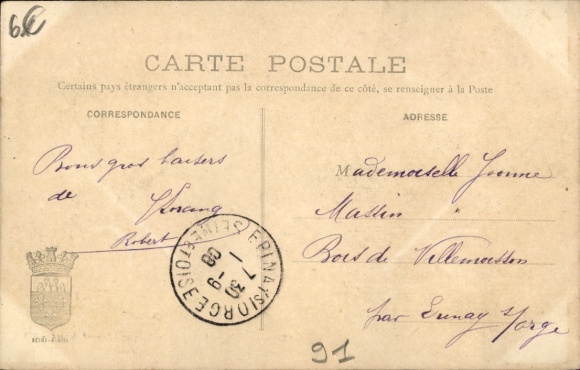 6€
CARTE POSTALE
Certains pays étrangers n'acceptant pas la correspondance de ce côté, se renseigner à la Poste
CORRESPONDANCE
ADRESSE
Bons gros baisers
de
Robert
Mademoiselle Yvonne
Massin
Bois de Villemoisson
par Epinay s/orge
EPINAY S/ ORGE SEINE ET OISE
7 30
1 -9
08
91